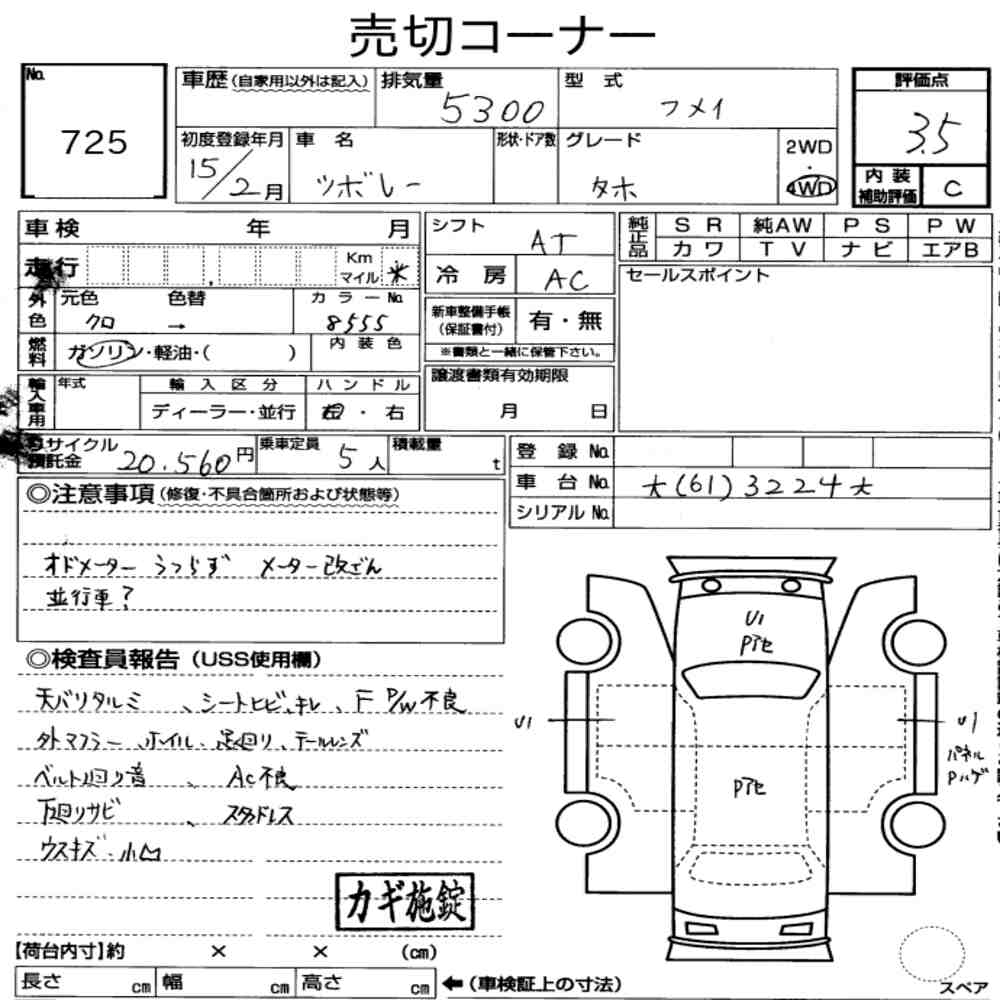 売切コーナー
No. 725
車歴(自家用以外は記入) 排気量 5300 型式 フメイ
評価点 3.5
初度登録年月 15/2月 車名 ツボレー 形状・ドア数 グレード タホ 2WD・4WD
内装補助評価 C
車検 年 月
走行 Km マイル *
外色 元色 クロ → 色替 カラーNo. 8555
燃料 ガソリン・軽油・( ) 内装色
輸入車用 年式 輸入区分 ディーラー・並行 ハンドル 左・右
シフト AT
冷房 AC
新車整備手帳(保証書付) 有・無
※書類と一緒に保管下さい。
譲渡書類有効期限
月 日
純正品 SR 純AW PS PW
カワ TV ナビ エアB
セールスポイント
リサイクル預託金 20.560円 乗車定員 5人 積載量 t
登録No.
車台No. ★(61)3224★
シリアルNo.
◎注意事項(修復・不具合箇所および状態等)
オドメーター うつらず メーター改ざん
並行車?
◎検査員報告(USS使用欄)
天バリタルミ、シートヒビ、キレ、F P/W不良
外マフラー、ホイル、足回り、テールレンズ
ベルト回り音、AC不良
下回りサビ、スタッドレス
ウスキズ・小凹
カギ施錠
U1
Pアセ
U1
U1
パネル
Pハゲ
Pアセ
【荷台内寸】約 × × (cm)
長さ cm 幅 cm 高さ cm ←(車検証上の寸法)
スペア